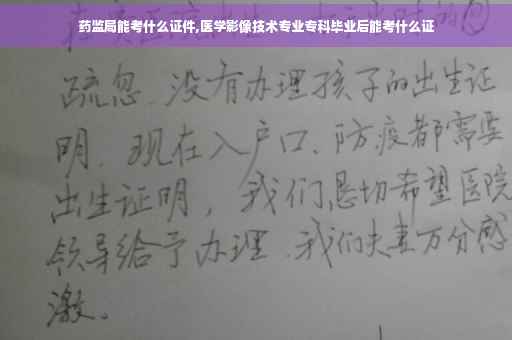 药监局能考什么证件,医学影像技术专业专科毕业后能考什么证
疏忽.没有办理孩子的出生证
明.现在入户口、防疫都需要
出生证明，我们恳切希望医院
领导给予办理.我们夫妻万分感
激。